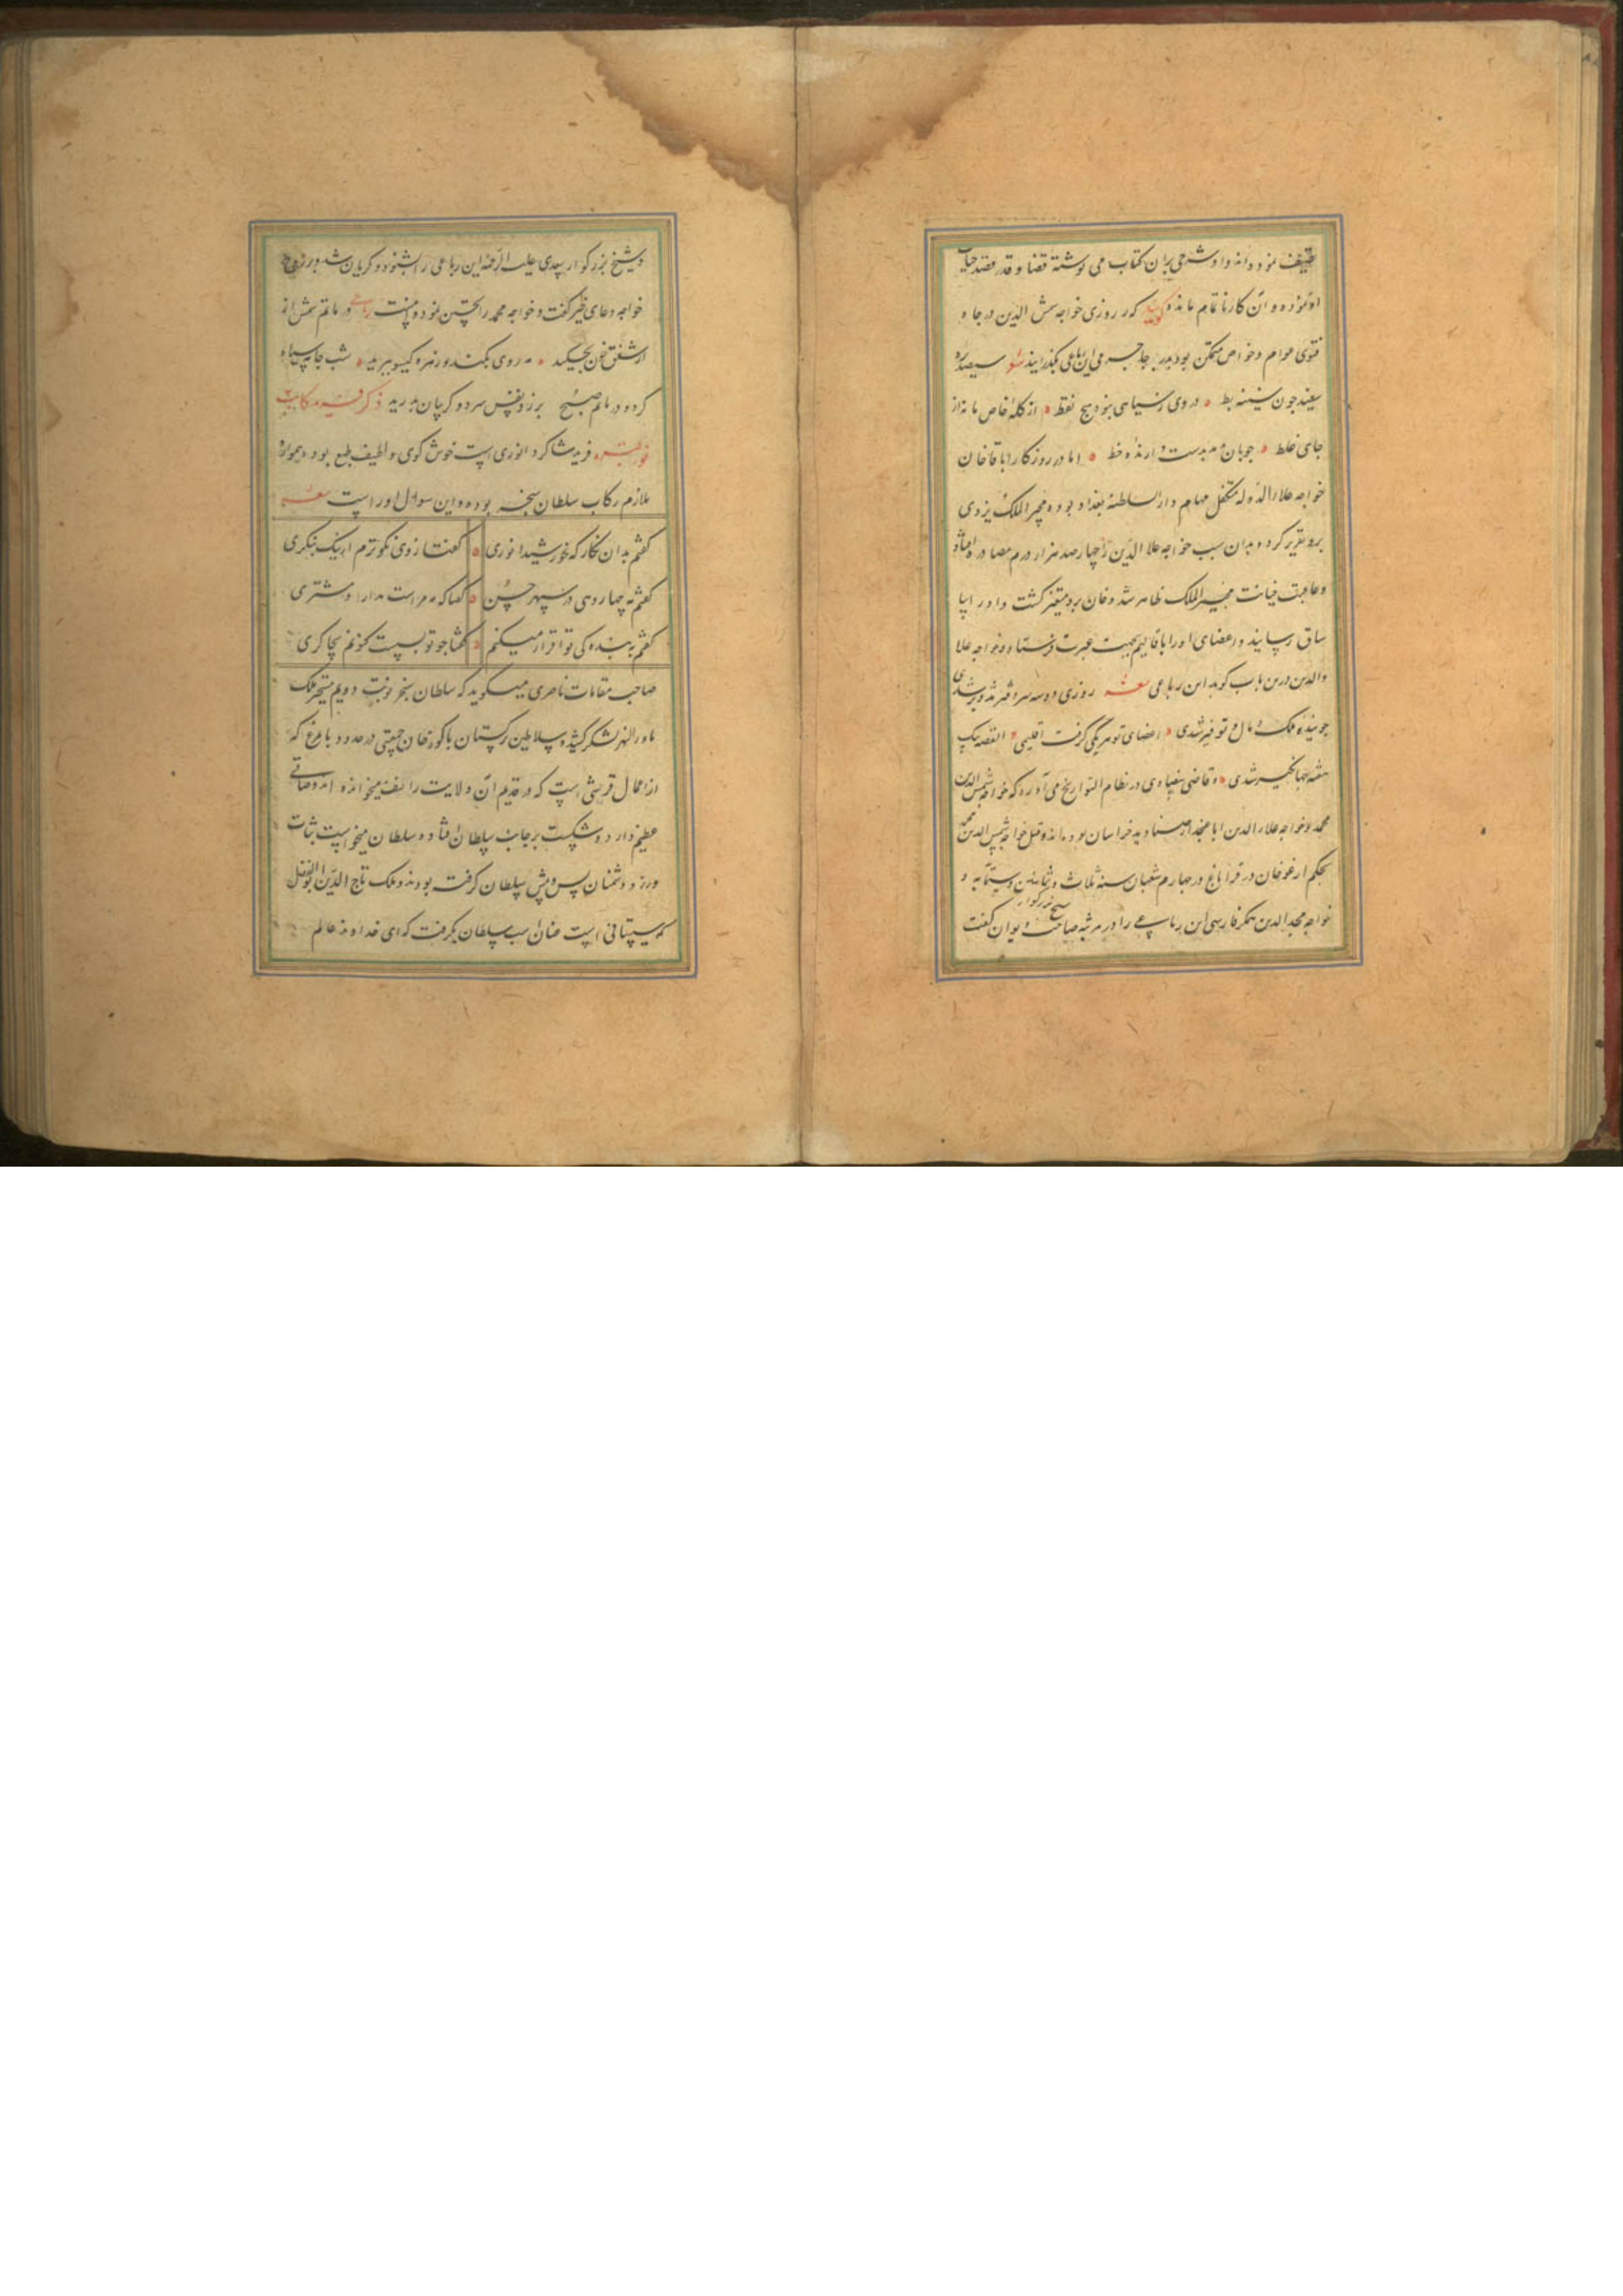 تصنیف نموده‌اند و او شرحی بران کتاب می نوشته قضا و قدر قصد حیات
او نموده و آن کار ناتمام مانده گویند که روزی خواجه شمس الدین در جاه و
فتوی عوام و خواص متمکن بود بدر جاجرمی این رباعی بگذرانید شعر سیصد بره
سفید چون سینه بط در وی ز سیاهی نبود هیچ نقط از کله خاص ما نه از
جای غلط چوپان بدهد بدست دارنده خط اما در روزکار اباقاخان
خواجه علاء الدوله متکفل مهام دار السلطنه بغداد بوده مجد الملک یزدی
برو تقریر کرد و بدان سبب خواجه علا الدین را چهارصد هزار درم مصادره افتاد
و عاقبت خیانت مجد الملک ظاهر شد و خان برو متغیر کشت و او را بیا
ساق رسانید و اعضای او را باقالیم بجهت عبرت فرستاد و خواجه علا
والدین درین باب کوید این رباعی شعر روزی دو سه سر دفتر تزویر شدی
جوینده ملک و مال و توفیر شدی اعضای تو هر یکی گرفت اقلیمی القصه بیک
هفته جهانکیر شدی و قاضی بیضاوی در نظام التواریخ می آورد که خواجه شمس الدین
محمد و خواجه علاء الدین ابا عن جد از صنادید خراسان بوده‌اند و قتل خواجه شمس الدین محمد
بحکم ارغو خان در قراباغ در چهارم شعبان سنه ثلاث و ثمانین و ستمایه و
خواجه مجد الدین همکر فارسی این رباعی را در مرثیه صاحب دیوان کفت
شیخ بزرکوار
و شیخ بزرکوار سعدی علیه الرحمه این رباعی را بشنود و کریان شد و بر روح
خواجه دعای خیر کفت و خواجه محمد را تحسین نمود و هی هذه رباعی در ماتم شمس از
از شفق خون بچکید مه روی بکند و زهره کیسو ببرید شب جامه سیاه
کرد در ماتم و صبح برزد نفس سرد و کریبان بدرید ذکر فرید کاتب
نور قبره فرید شاکرد انوری است خوش کوی و لطیف طبع بود و همواره
ملازم رکاب سلطان سنجر بوده و این سوال او راست شعر
کفتم بدان نکار که خورشید انوری کفتا ز وی نکوترم ار نیک بنکری
کفتم مه چهاردهی در سپهر حسن کفتا که مه مراست مدارا و مشتری
کفتم به بندکی تو اقرار میکنم کفتا چو تو بسیست کنونم بچاکری
صاحب مقامات ناصری میکوید که سلطان سنجر نوبت دویم بتسخیر ملک
ماورالنهر لشکر کشید و سلاطین ترکستان با کورخان جمعیتی در حدود بامرغ که
از اعمال قرشی است که در قدیم آن ولایت را نسف میخوانده‌اند و مصافی
عظیم دارد و شکست بر جانب سلطان افتاد و سلطان میخواست ثبات
ورزد و دشمنان پس و پیش سلطان کرفته بودند و ملک تاج الدین ابو الفضل
که سیستانی است عنان اسب سلطان بکرفت که ای خداوند عالم